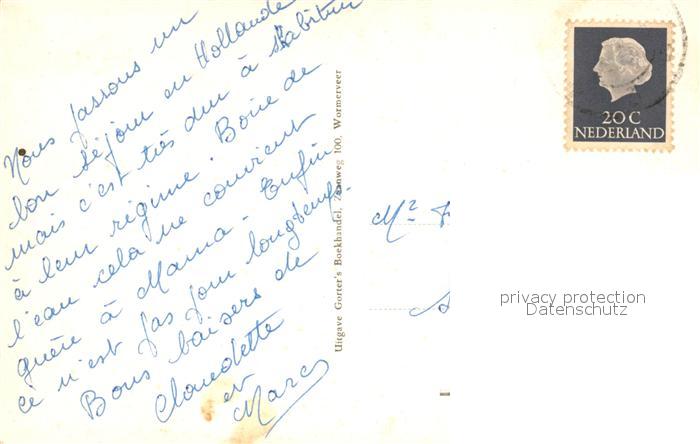 Nous passons un
bon séjour en Hollande
mais c'est très dur à s'habituer
à leur régime. Boire de
l'eau cela ne convient
guère à Mama - Enfin
ce n'est pas pour longtemps.
Bons baisers de
Claudette
et
Marc
Uitgave Gorter's Boekhandel, Zaanweg 100, Wormerveer
20 C
NEDERLAND
Mr
privacy protection
Datenschutz